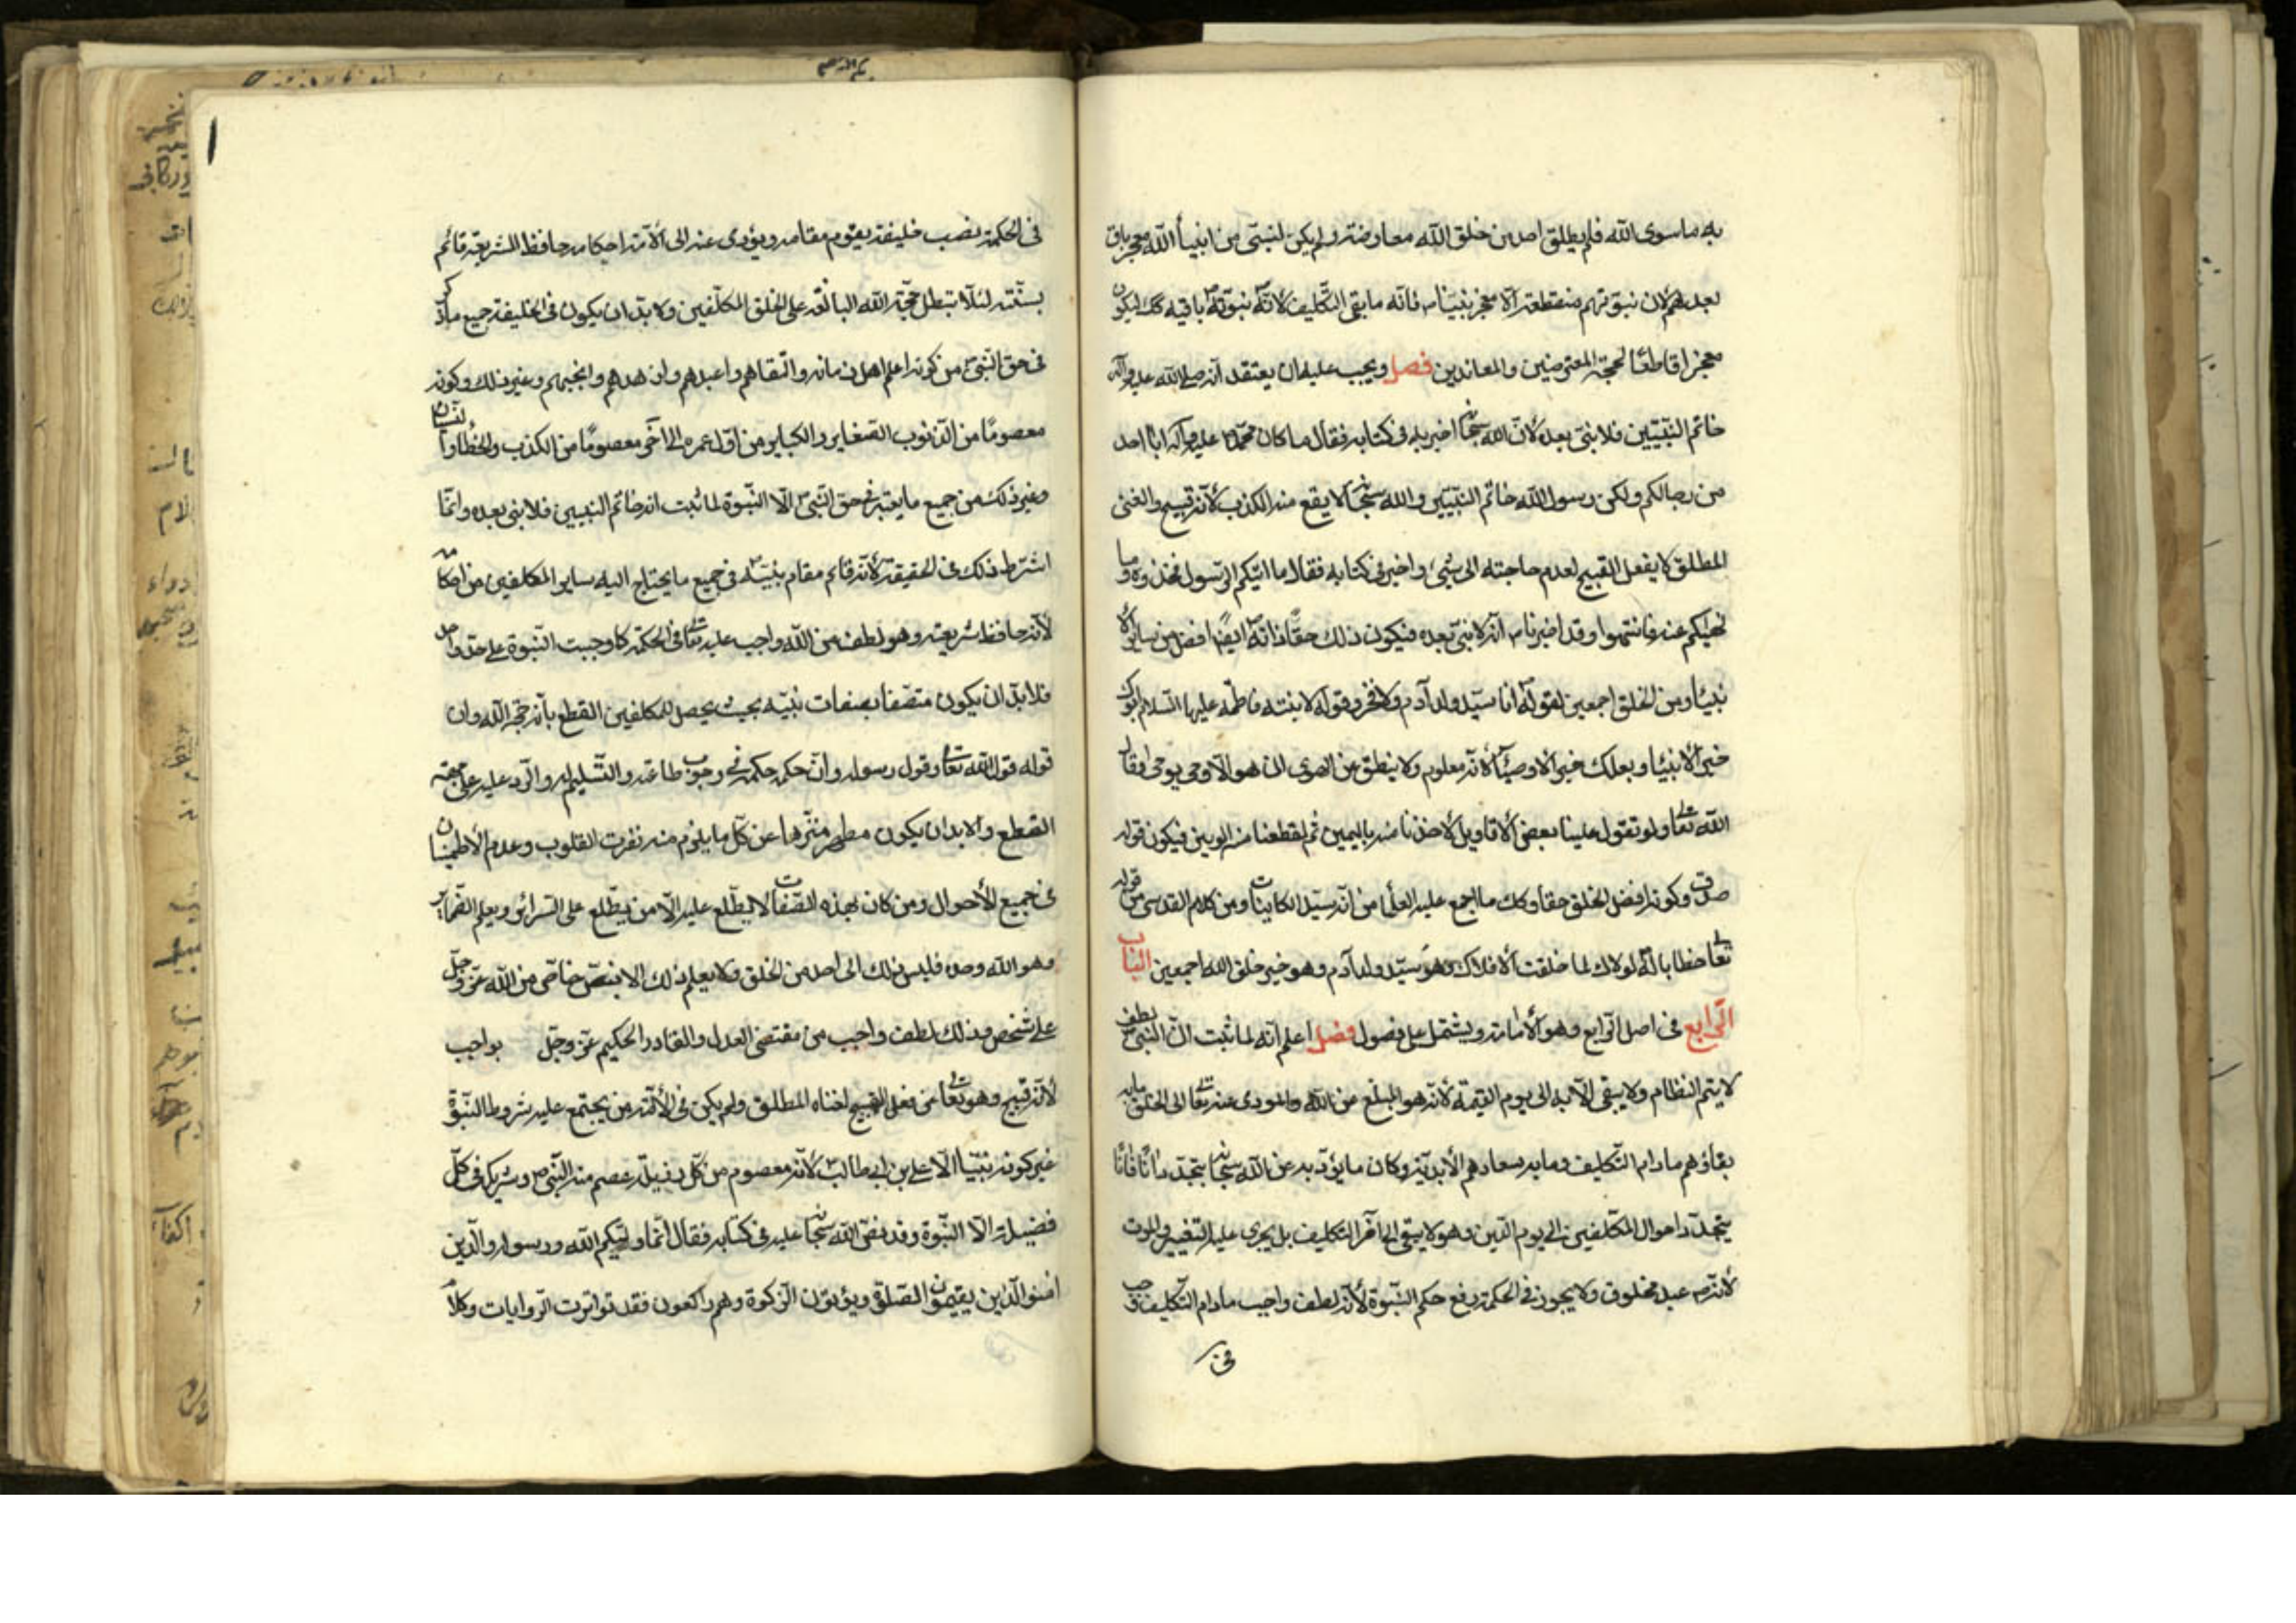 به ما سوى الله فلم يطلق احد من خلق الله معارضته ولم يكن لنبى من انبيأ الله معجز باق
بعدهم لان نبوتهم منقطعة الا معجز نبينا ص فانه ما بقى التكليف لانه ص نبوته باقيه كك ليكون
معجزا قاطعًا لحجة المعترضين والمعاندين فصل ويجب عليه ان يعتقد انه صلى الله عليه وآله
خاتم النبيين فلا نبى بعده لانّ الله سبحانه اخبر به فى كتابه فقال ما كان محمد ص عليه وآله ابا احد
من رجالكم ولكن رسول الله خاتم النبيين والله سبحانه لا يقع منه الكذب لأنه قبيح والغنى
المطلق لا يفعل القبيح لعدم حاجته الى شىء واخبر فى كتابه فقال ما اتيكم الرسول فخذوه وما
نهيكم عنه فانتهوا وقد اخبرنا ص انه لا نبى بعده فيكون ذلك حقًا وانه ايضًا افضل من ساير الا
نبيأ ومن الخلق اجمعين لقوله ص انا سيد ولد آدم ولا فخر وقوله لابنته فاطمه عليها السلام ابوك
خير الأنبيأ وبعلك خير الاوصيأ لأنه معلوم ولا ينطق عن الهوى ان هو الا وحى يوحى وقال
الله تعالى ولو تقول علينا بعض الأقاويل لأخذنا منه باليمين ثم لقطعنا منه الوتين فيكون قوله
صدق وكونه افضل الخلق حقأ وكك ما اجمع عليه العلمأ من انه سيد الكاينات ومن كلام القدسى من قوله
تعالى خطابا له لولاك لما خلقت الأفلاك وهو سيد ولد آدم وهو خير خلق الله اجمعين الباب
الرابع فى اصل الرابع وهو الأمامة ويشتمل على فصول فصل اعلم انه لما ثبت ان النبى ص لطف
لا يتم النظام ولا يبقى الا به الى يوم القيمة لأنه هو المبلغ عن الله والمودى عنه تعالى الى الخلق ما به
بقاؤهم ما دام التكليف وما به سعادهم الأبدية وكان ما يؤدّيه عن الله سبحانه يتجدد آنا فآنا
يتجدد احوال المكلفين الى يوم الدين وهو لا يبقى الى آخر التكليف بل يجرى عليه التغيير والموت
لأنه ص عبد مخلوق ولا يجوز فى الحكمة رفع حكم النبوة لأنه لطف واجب ما دام التكليف وجب
فى
فى الحكمة نصب خليفة يقوم مقامه ويؤدى عنه الى الأمة احكامه حافظ الشريعة قائم
بسنته لئلا تبطل حجة الله البالغة على الخلق المكلفين ولا بد ان يكون فى الخليفة جميع ما ذكر
فى حق النبى ص من كونه اعلم اهل زمانه واتقاهم واعبدهم وازهدهم وانجبهم وغير ذلك وكونه
معصومًا من الذنوب الصغاير والكباير من اول عمره الى آخره معصومًا من الكذب والخطا والنسيان
وغير ذلك من جميع ما يعتبر فى حق النبى ص الّا النبّوة لما ثبت انه خاتم النبيين فلا نبى بعده وانما
اشترط ذلك فى الحقيقة لأنه قائم مقام نبيه ص فى جميع ما يحتاج اليه ساير المكلفين من احكامه
لأنه حافظ شريعته وهو لطف من الله واجب عليه تعالى فى الحكمة كما وجبت النبوة على حد واحد
فلا بد ان يكون متصفا بصفات نبيه بحيث يحصل للمكلفين القطع بأنه حجة الله وان
قوله قول الله تعالى وقول رسوله وان حكمه حكمه فى وجوب طاعته والتسليم له والرد عليه على جهة
القطع ولا بد ان يكون مطهر منزها عن كل ما يلزم منه نفرت القلوب وعدم الاطمينان
فى جميع الأحوال ومن كان بهذه الصفات لا يطلع عليه الا من يطلع على السرائر ويعلم الضمائر
وهو الله وحده فليس ذلك الى احد من الخلق ولا يعلم ذلك الا بنص خاص من الله عز وجل
على شخص وذلك لطف واجب من مقتضى العدل والقادر الحكيم عز وجل بواجب
لأنه قبيح وهو تعالى عن فعل القبيح لغناه المطلق ولم يكن فى الأمة من يجتمع عليه شروط النبّوة
غير كونه نبيّا الّا على بن ابى طالب ع لأنه معصوم من كل رذيلة عصم منه النبى ص وشريك فى كلّ
فضيلة الا النبّوة وقد نصّ الله سبحانه عليه فى كتابه فقال انما وليكم الله ورسوله والذين
امنوا الذين يقيمون الصلوة ويؤتون الزكوة وهم راكعون فقد تواترت الروايات وكلام